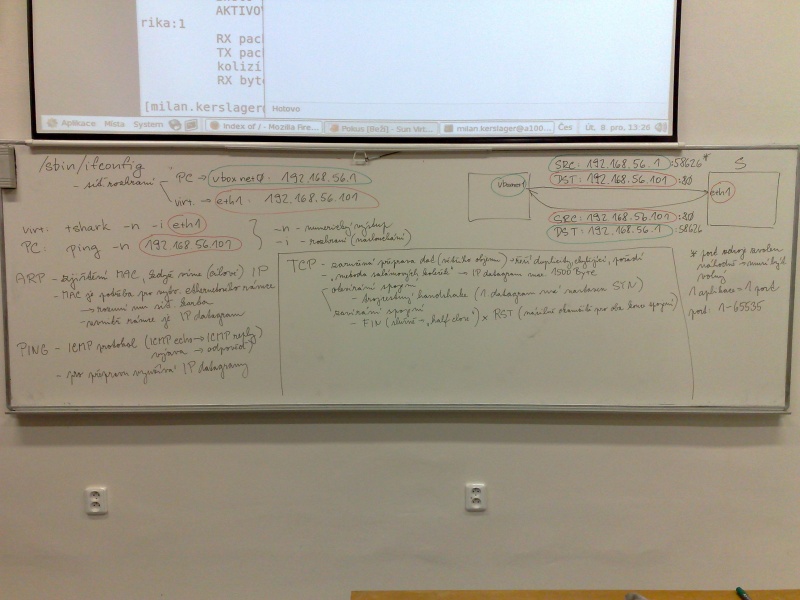 AKTIVOV
rika:1
RX pack
TX pack
kolizí
RX byte
[milan.kerslager
Hotovo
Aplikace Místa System Index of / - Mozilla Fire... Pokus [Běží] - Sun Virt... milan.kerslager@a100... Čes Út, 8. pro, 13:26
/sbin/ifconfig
- síť. rozhraní
PC → vboxnet0: 192.168.56.1
virt. → eth1: 192.168.56.101
virt: tshark -n -i eth1
PC: ping -n 192.168.56.101
-n - numerický výstup
-i - rozhraní (naslouchání)
SRC: 192.168.56.1 :58626*
DST: 192.168.56.101 :80
vboxnet
S
eth1
SRC: 192.168.56.101 :80
DST: 192.168.56.1 :58626
ARP - zjištění MAC, když víme (cílové) IP
- MAC je potřeba pro vytvoř. ethernetového rámce
→ rozumí mu síť. karta
- uvnitř rámce je IP datagram
PING - ICMP protokol (ICMP echo → ICMP reply
výzva → odpověď)
- pro přepravu využívá IP datagramy
TCP - zaručená přeprava dat (většího objemu) → řeší duplicity, chybějící, pořadí
- „metoda salámových koleček" → IP datagram max. 1500 Byte
otevírání spojení
- trojcestný handshake (1. datagram má nastaven SYN)
zavírání spojení
- FIN (slušné → „half close") × RST (násilné okamžité pro oba konce spojení)
* port zdroj zvolen
náhodně → musí být
volný
1 aplikace = 1 port
port: 1-65535